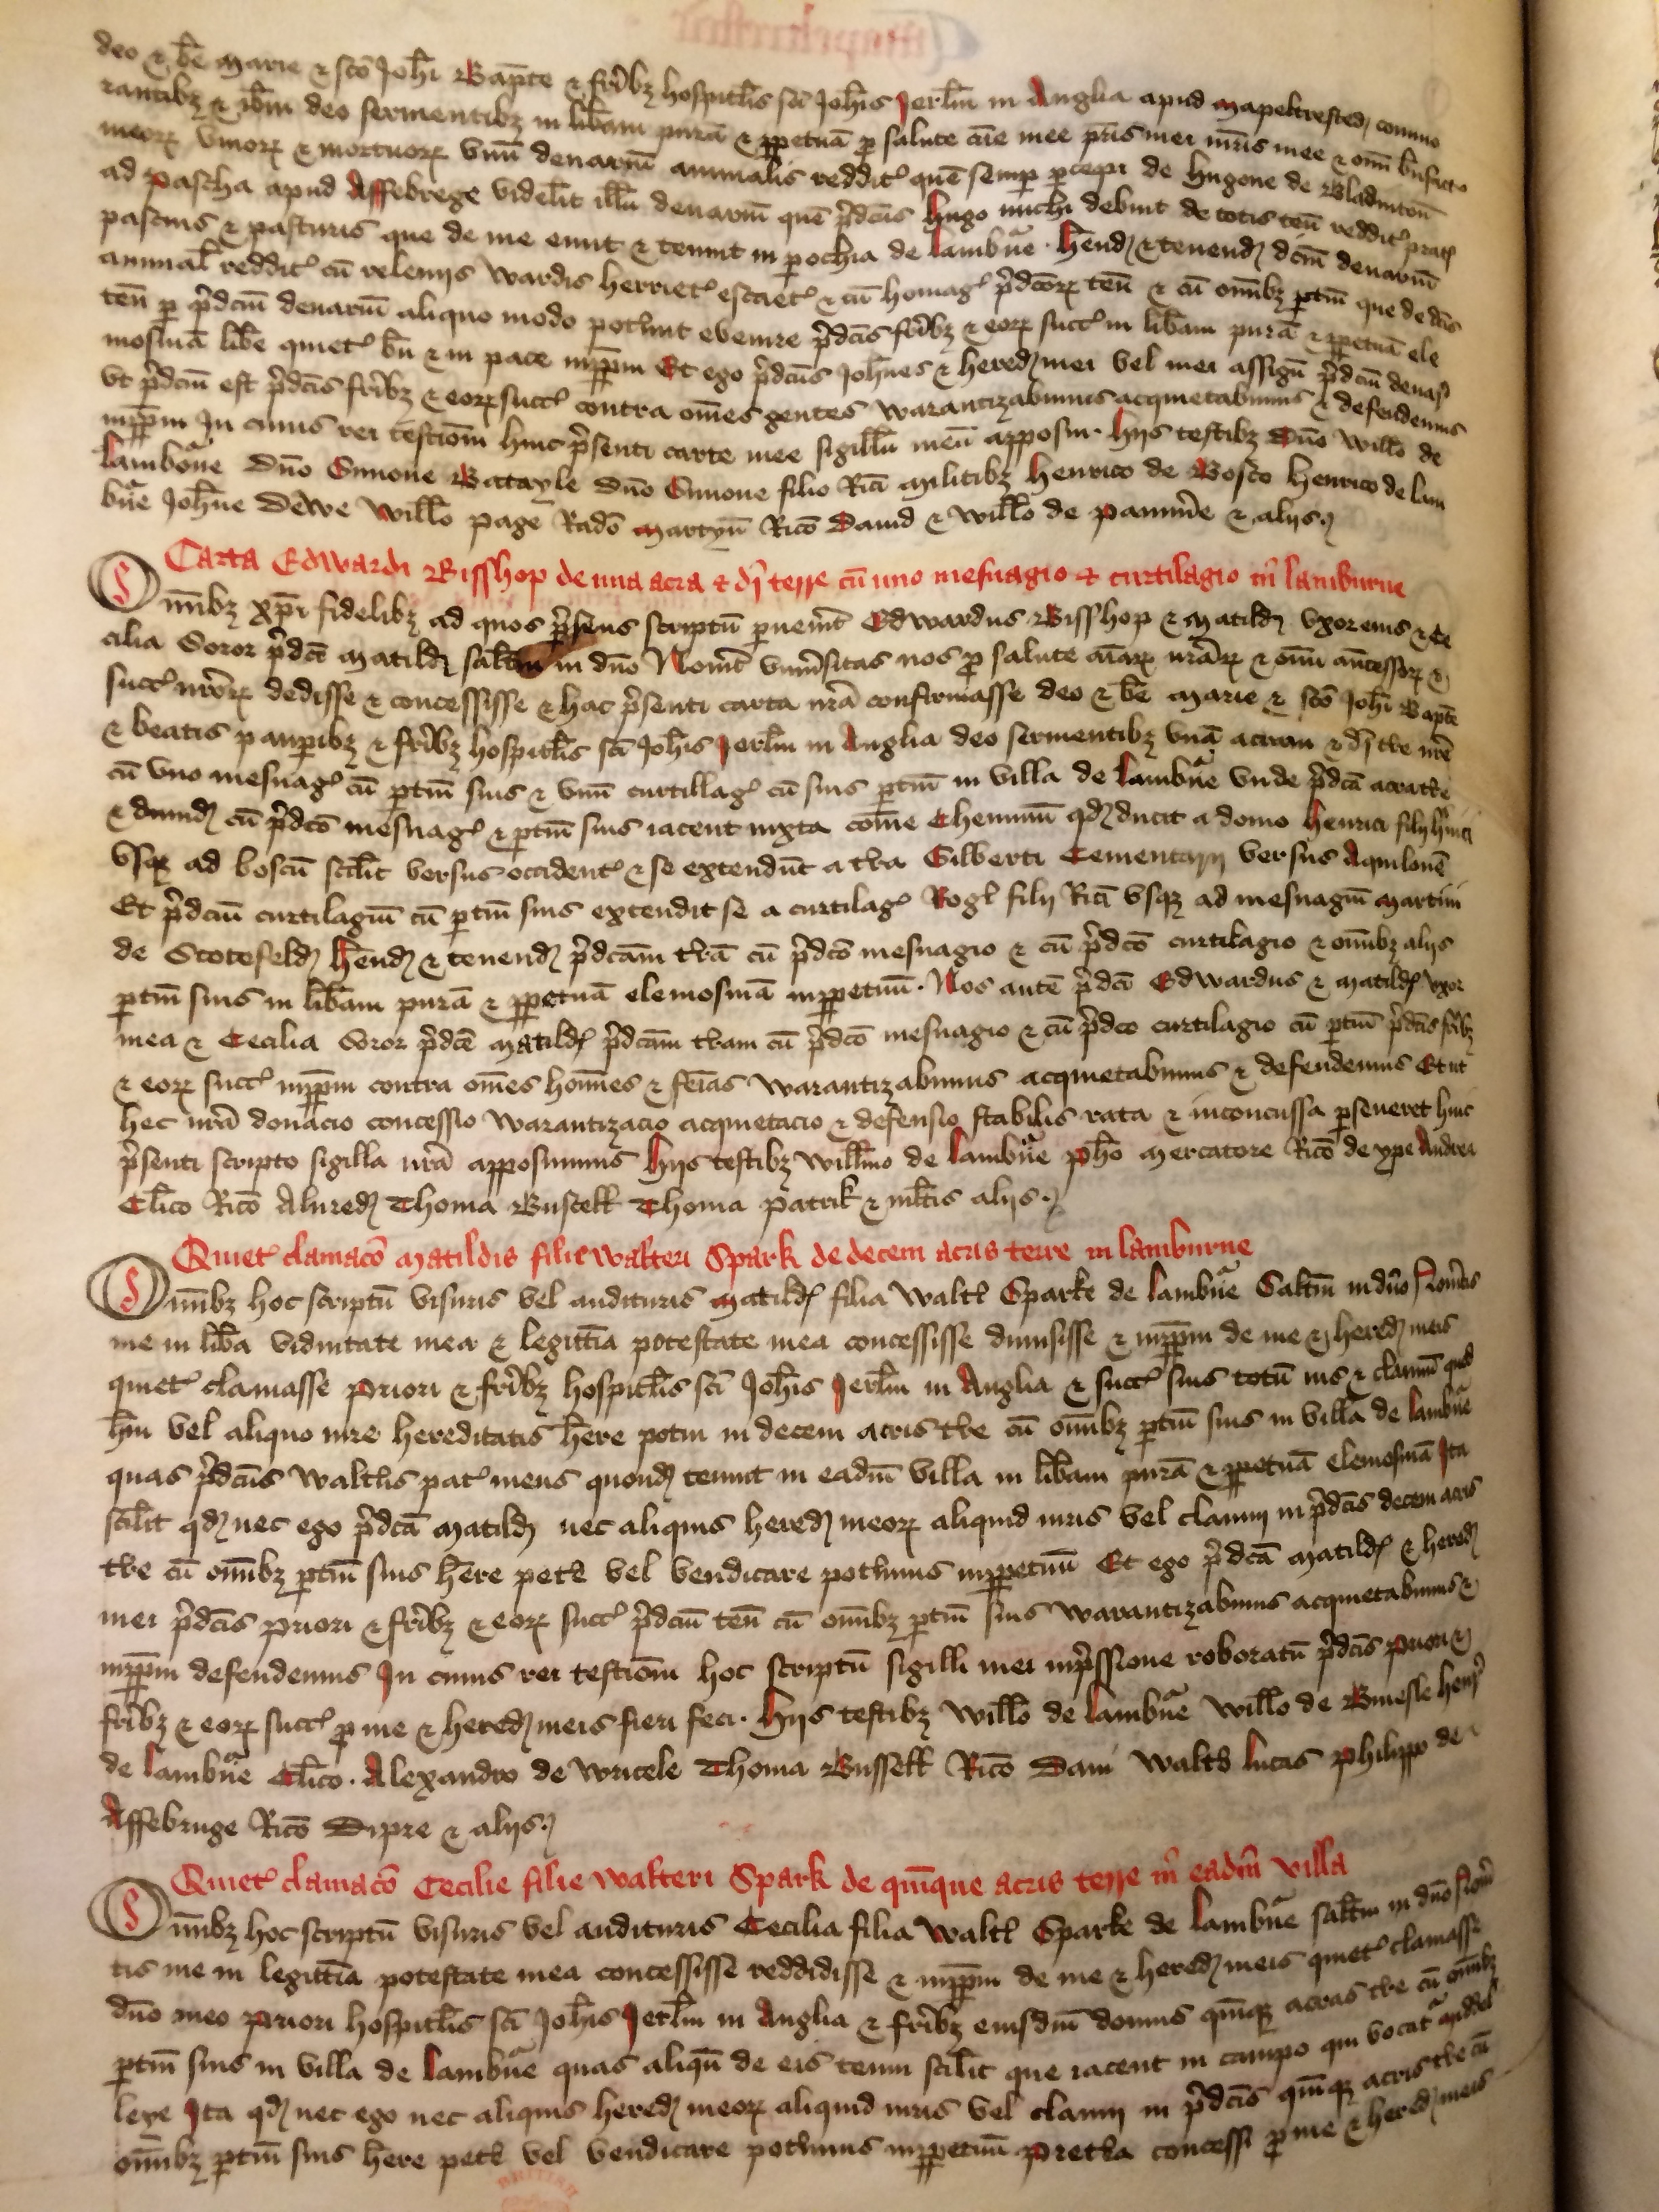 deo & bē Marie & scō Joh̄i Bap̄te & fr̄ibȝ hospitl̄is sc̄i Joh̄is Jerl̄m in Anglia apud Mapeltrested commo
rantibȝ & ib̄m deo seruientibȝ in lib̄am purā & ꝑpetuā ꝑ salute aīe mee pr̄is mei mr̄is mee & om̄ bn̄factoꝝ
meoꝝ viuoꝝ & mortuoꝝ vnū denariū annualis reddit quē semꝑ ꝑcepi de Hugone de Bladintoū
ad Pascha apud Affebrege videl̄it illū denariū quē p̄dc̄us Hugo michi debuit de totis ten̄ reddit prat
pascuis & pasturis que de me emit & tenuit in ꝑochia de Lambūne. Hend & tenend dc̄m denariū
annual̄ reddit cū releuijs Wardis herriet escaet & cū homag p̄dcōꝝ ten̄ & cū om̄ibȝ ꝑtin̄ que de dc̄is
ten̄ ꝑ p̄dcm̄ denariū aliquo modo pot̄unt euenire p̄dc̄is fr̄ibȝ & eoꝝ succ in lib̄am purā & ꝑpetuā ele
mosinā lib̄e quiet bn̄ & in pace inꝑpm̄ Et ego p̄dc̄us Joh̄nes & hered mei vel mei assign̄ p̄dcm̄ denar
vt p̄dcm̄ est p̄dc̄is fr̄ibȝ & eoꝝ succ contra om̄es gentes Warantizabimus acquietabimus & defendemus
inꝑpm̄ In cuius rei testiōm huic p̄senti carte mee sigillū meū apposui. Hijs testibȝ Dn̄o Will̄o de
Lambōne Dn̄o Simone Batayle Dn̄o Simone filio Ric̄i Militibȝ Henrico de Bosco Henrico de Lam
būne Joh̄ne Dewe Will̄o page Rad̄o Martyn̄ Ric̄o Dauid & Will̄o de & alijs
Carta Edwardi Bisshop de una acra & dī terre cū uno mesuagio & curtilagio in Lamburne
Om̄ibȝ xp̄i fidelibȝ ad quos p̄sens scriptū ꝑuen̄it Edwardus Bisshop & Matild vxor eius & Ce
cilia Soror p̄dce Matild salt̄m in dn̄o Nou̓it vniu̓sitas nos ꝓ salute aīaꝝ nr̄aꝝ & om̄i an̄cessoꝝ &
succ nr̄oꝝ dedisse & concessisse & hac p̄senti carta nr̄a confirmasse deo & bē Marie & scō Joh̄i Bapte
& beatis pauꝑibȝ & fr̄ibȝ hospitl̄is sc̄i Joh̄is Jerl̄m in Anglia deo seruientibȝ vnā acram & dī t̄re nr̄e
cū vno mesuag cū ꝑtin̄ suis & vnū curtillag cū suis ꝑtin̄ in villa de Lambūne vnde p̄dcā acra t̄re
& dimid cū p̄dcō mesuag & ꝑtin̄ suis iacent iuxta cōme Cheminū qd ducit a domo Henrici filij
vsqȝ ad boscū scil̄it versus occident & se extendūt a t̄ra Gilberti Cementarij versus Aquilonē
Et p̄dcm̄ curtilagiū cū ꝑtin̄ suis extendit se a curtilag Rog̓i filij Ric̄i vsqȝ ad mesuagiū Martini
de Stotefeld Hend & tenend p̄dcām t̄rā cū p̄dcō mesuagio & cū p̄dcō curtilagio & om̄ibȝ alijs
ꝑtin̄ suis in lib̄am purā & ꝑpetuā elemosinā inꝑpetuū. Nos autē p̄dcī Edwardus & Matild vxor
mea & Cecilia Soror p̄dcē Matild p̄dcām t̄ram cū p̄dcō mesuagio & cū p̄dco curtilagio cū ꝑtin̄ p̄dc̄is fr̄ibȝ
& eoꝝ succ inꝑpm̄ contra om̄es hoīnes & feīas Warantizabimus acquietabimus & defendemus Et ut
hec nr̄a donacio concessio Warantizacio acquietacio & defensio stabilis rata & inconcussa ꝑseueret huic
p̄senti scripto sigilla nr̄a apposuimus Hijs testibȝ Will̄mo de Lambūne Ph̄o Mercatore Ric̄o de ype Andrea
Cl̄ico Ric̄o Alured Thoma Buscell Thoma Patrik & ml̄tis alijs
Quiet clamacō Matildis filie Walteri Spark de decem acris terre in Lamburne
Om̄ibȝ hoc scriptū visuris vel audituris Matild filia Walt̄i Sparke de Lambūne Salt̄m in dn̄o Nou̓itis
me in lib̄a viduitate mea & legittīa potestate mea concessisse dimisisse & inꝑpm̄ de me & hered meis
quiet clamasse Priori & fr̄ibȝ hospitl̄is sc̄i Joh̄is Jerl̄m in Anglia & succ suis totū ius & clamū quod
h̄ui vel aliquo iure hereditatis h̄ere potui in decem acris t̄re cū om̄ibȝ ꝑtin̄ suis in villa de Lambūne
quas p̄dc̄us Walt̄us pat̓ meus quond tenuit in ead̄m villa in lib̄am purā & ꝑpetuā elemosinā Ita
scil̄it qd nec ego p̄dcā Matild nec aliquis hered meoꝝ aliquid iuris vel clamij in p̄dc̄is decem acris
t̄re cū om̄ibȝ ꝑtin̄ suis h̄ere pet̓e vel vendicare pot̓imus inꝑpetuū Et ego p̄dcā Matild & hered
mei p̄dc̄is Priori & fr̄ibȝ & eoꝝ succ p̄dcm̄ ten̄ cū om̄ibȝ ꝑtin̄ suis Warantizabimus acquietabimus &
inꝑpm̄ defendemus In cuius rei testiōm hoc scriptū sigilli mei inp̄ssione roboratū p̄dc̄is Priori &
fr̄ibȝ & eoꝝ succ ꝓ me & hered meis fieri feci. Hijs testibȝ Will̄o de Lambūne Will̄o de Henr
de Lambūne Cl̄ico. Alexandro de Writele Thoma Bussell Ric̄o Dani Walt̄o Lucas Philippo de
Affebruge Ric̄o Dipre & alijs
Quiet clamacō Cecilie filie Walteri Spark de quīque acris terre in ead̄m villa
Om̄ibȝ hoc scriptū visuris vel audituris Cecilia filia Walt̄i Sparke de Lambūne salt̄m in dn̄o Nou̓i
tis me in legittīa potestate mea concessisse reddidisse & inꝑpm̄ de me & hered meis quiet clamasse
dn̄o meo Priori hospitl̄is sc̄i Joh̄is Jerl̄m in Anglia & fr̄ibȝ eiusd̄m domus quīqȝ acras t̄re cū om̄ibȝ
ꝑtin̄ suis in villa de Lambūne quas aliqn̄ de eis tenui scil̄it que iacent in campo qui vocat̄
leye Ita qd nec ego nec aliquis hered meoꝝ aliquid iuris vel clamij in p̄dc̄is quīqȝ acris t̄re cū
om̄ibȝ ꝑtin̄ suis h̄ere pet̓e vel vendicare pot̓imus inꝑpetuū Pret̓ea concessi ꝓ me & hered meis